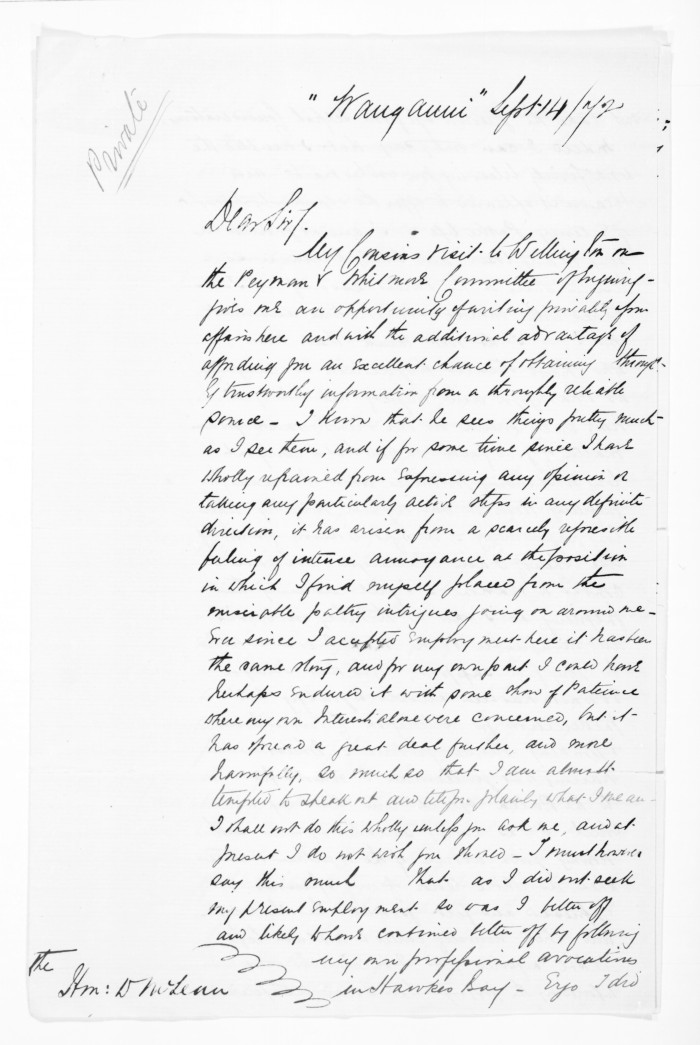 Private
"Wanganui" Sept 14/72
Dear Sir/.
My Cousins visit to Wellington on
the Peyman & Whitmore Committee of Inquiry -
gives me an opportunity of writing privately upon
affairs here and with the additional advantage of
affording you an excellent chance of obtaining through
trustworthy information from a throughly reliable
source - I know that he sees things pretty much
as I see them, and if for some time since I have
wholly refrained from expressing any opinion or
taking any particularly active steps in any definite
direction, it has arisen from a scarcely repressible
feeling of intense annoyance at the position
in which I find myself placed from the
miserable paltry intrigues going on around me -
Ever since I accepted employment here it has been
the same story, and for my own part I could have
perhaps endured it with some show of Patience
where my own Interest alone were concerned, but it
has spread a great deal further, and more
harmfully, so much so that I am almost
tempted to speak out and tell you plainly what I mean -
I shall not do this wholly unless you ask me, and at
present I do not wish you should - I must however
say this much That as I did not seek
my present employment so was I better off
and likely to have continued better off by following
my own professional avocations
in Hawkes Bay - Ergo I did
the
Hon: D McLean